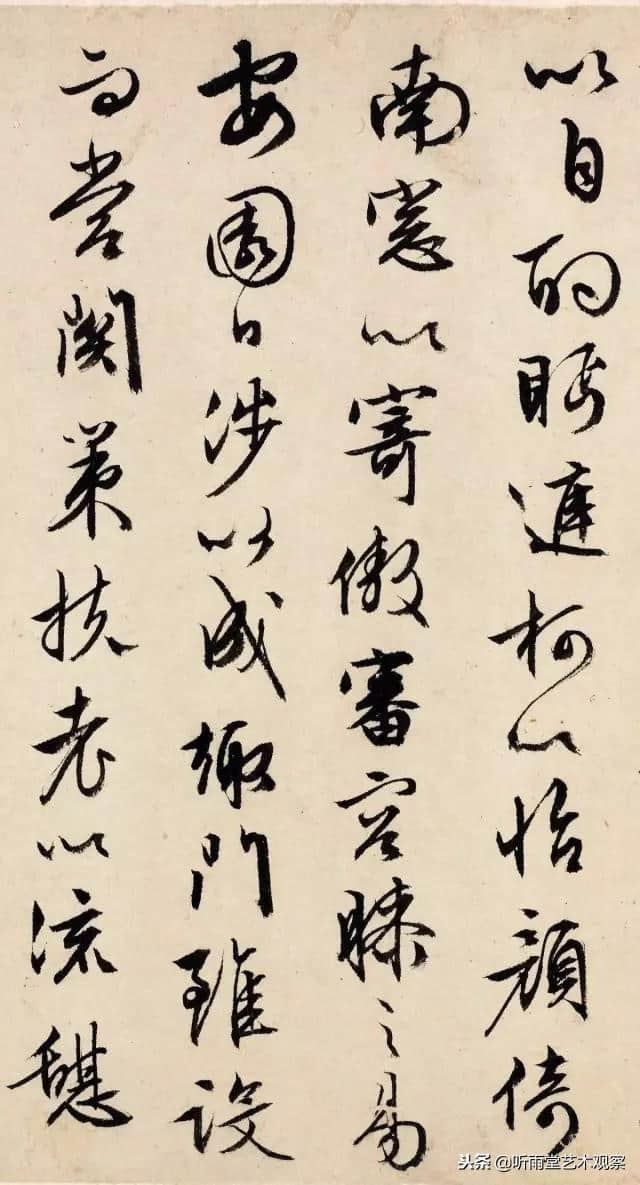 以自酌眄庭柯以怡顔倚
南窓以寄傲審容膝之易
安園日涉以成趣門雖設
而常關策扶老以流憩
头条 @听雨堂艺术观察